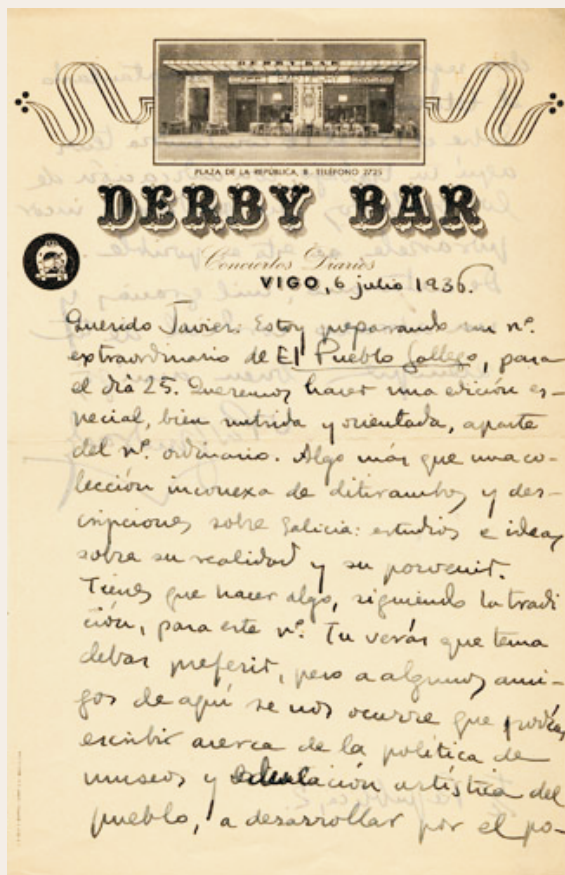 DERBY BAR
PLAZA DE LA REPÚBLICA, 8. TELÉFONO 2725
DERBY BAR
Conciertos Diarios
VIGO, 6 julio 1936.
Querido Javier: Estoy preparando un nº.
extraordinario de El Pueblo Gallego, para
el día 25. Queremos hacer una edición es-
pecial, bien nutrida y orientada, aparte
del nº. ordinario. Algo más que una co-
lección inconexa de ditirambos y des-
cripciones sobre Galicia: estudios e ideas
sobre su realidad y su porvenir.
Tienes que hacer algo, siguiendo la tradi
ción, para este nº. Tu verás que tema
debas preferir, pero a algunos ami-
gos de aquí se nos ocurre que podías
escribir acerca de la política de
museos y educación artística del
pueblo, a desarrollar por el po-